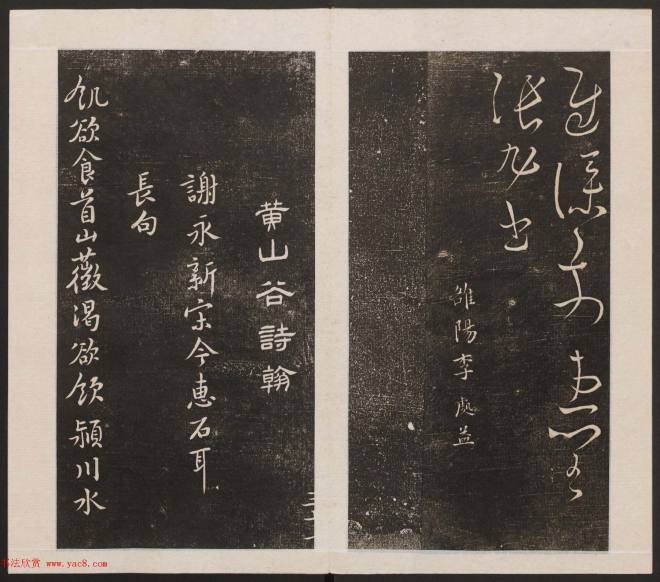 張旭書
雒陽李處益
黃山谷詩翰
謝永新宋令惠石耳
長句
飢欲食首山薇渴欲飲潁川水
书法欣赏 www.yac8.com